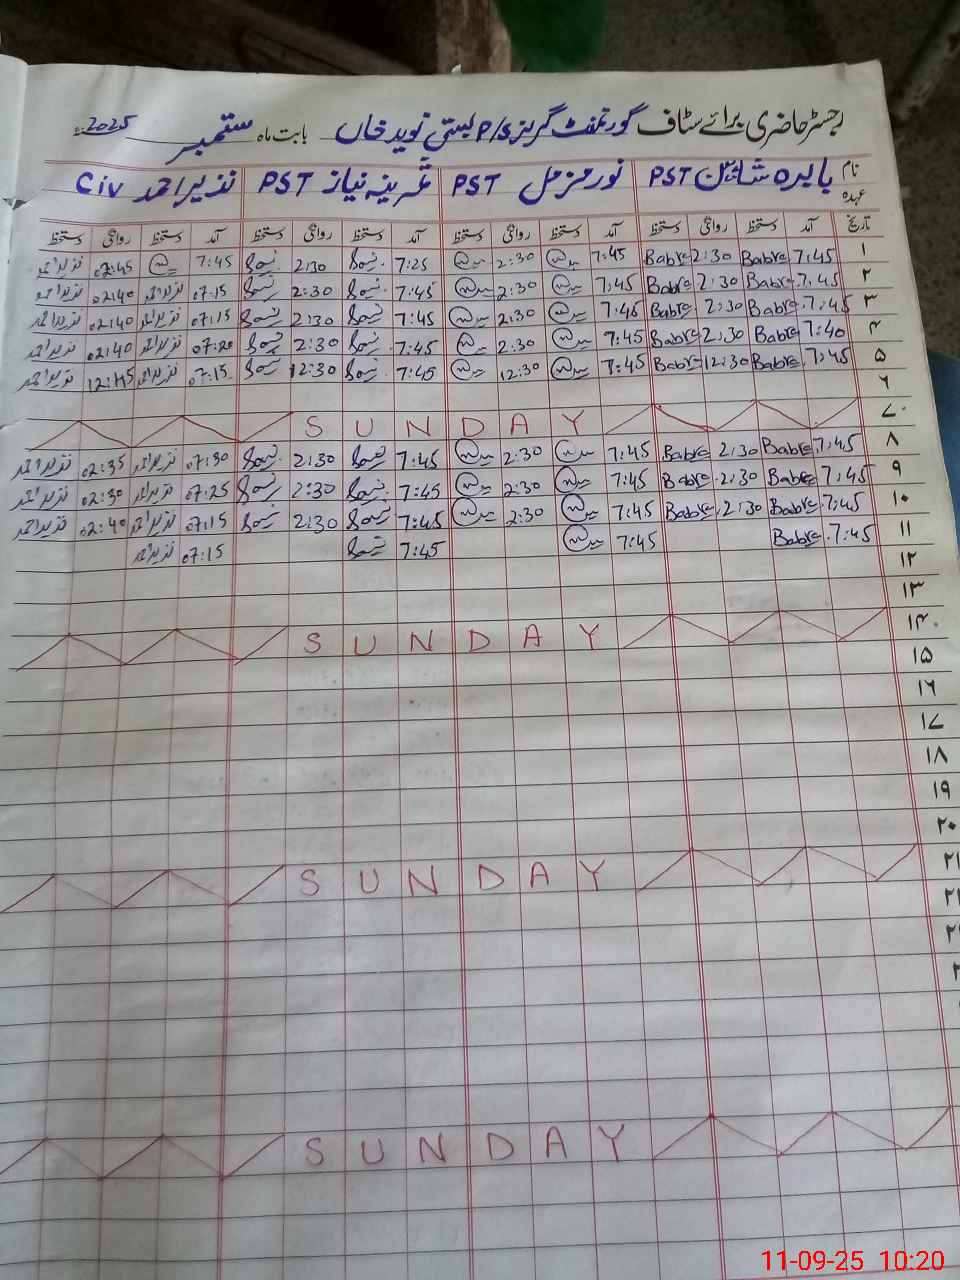 رجسٹر حاضری برائے سٹاف گورنمنٹ گرلز P/S بستی نوید خاں بابت ماہ ستمبر 2025
نام بابرہ شاہین PST نور مزمل PST PST نذیر احمد Civ
عہدہ
تاریخ آمد دستخط روانگی دستخط آمد دستخط روانگی دستخط آمد دستخط روانگی دستخط آمد دستخط روانگی دستخط
۱ 7:45 Babre 2:30 Babre 7:45 2:30 7:25 2:30 7:45 02:45 نذیر احمد
۲ 7:45 Babre 2:30 Babre 7:45 2:30 7:45 2:30 07:15 نذیر احمد 02:40 نذیر احمد
۳ 7:45 Babre 2:30 Babre 7:45 2:30 7:45 2:30 07:15 نذیر احمد 02:40 نذیر احمد
۴ 7:40 Babre 2:30 Babre 7:45 2:30 7:45 2:30 07:20 نذیر احمد 02:40 نذیر احمد
۵ 7:45 Babre 12:30 Babre 7:45 12:30 7:45 12:30 07:15 نذیر احمد 12:45 نذیر احمد
۶
۷ SUNDAY
۸ 7:45 Babre 2:30 Babre 7:45 2:30 7:45 2:30 07:30 نذیر احمد 02:35 نذیر احمد
۹ 7:45 Babre 2:30 Babre 7:45 2:30 7:45 2:30 07:25 نذیر احمد 02:30 نذیر احمد
۱۰ 7:45 Babre 2:30 Babre 7:45 2:30 7:45 2:30 07:15 نذیر احمد 02:40 نذیر احمد
۱۱ 7:45 Babre 7:45 7:45 07:15 نذیر احمد
۱۲
۱۳
۱۴ SUNDAY
۱۵
۱۶
۱۷
۱۸
۱۹
۲۰
۲۱ SUNDAY
SUNDAY
11-09-25 10:20